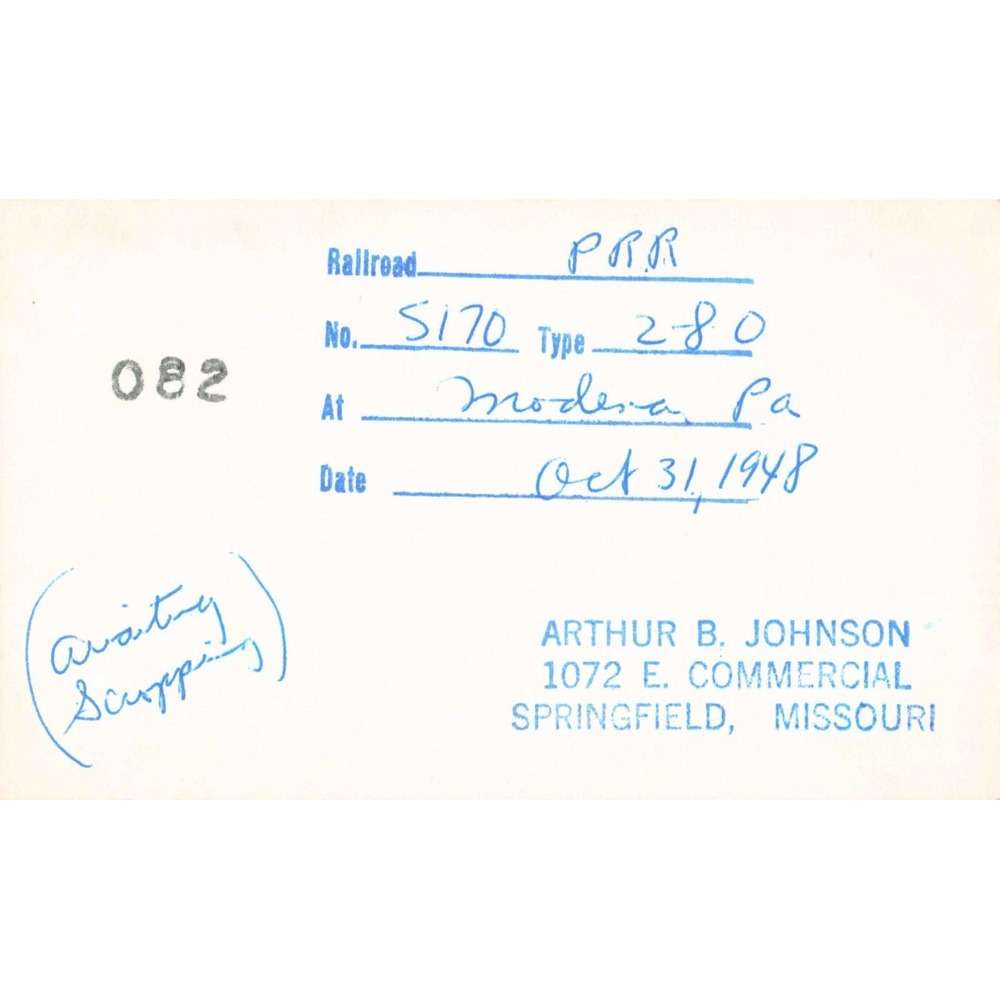 Railroad PRR
No. 5170 Type 2-8-0
At Modena, Pa
Date Oct 31, 1948
082
(Awaiting
Scrapping)
ARTHUR B. JOHNSON
1072 E. COMMERCIAL
SPRINGFIELD, MISSOURI